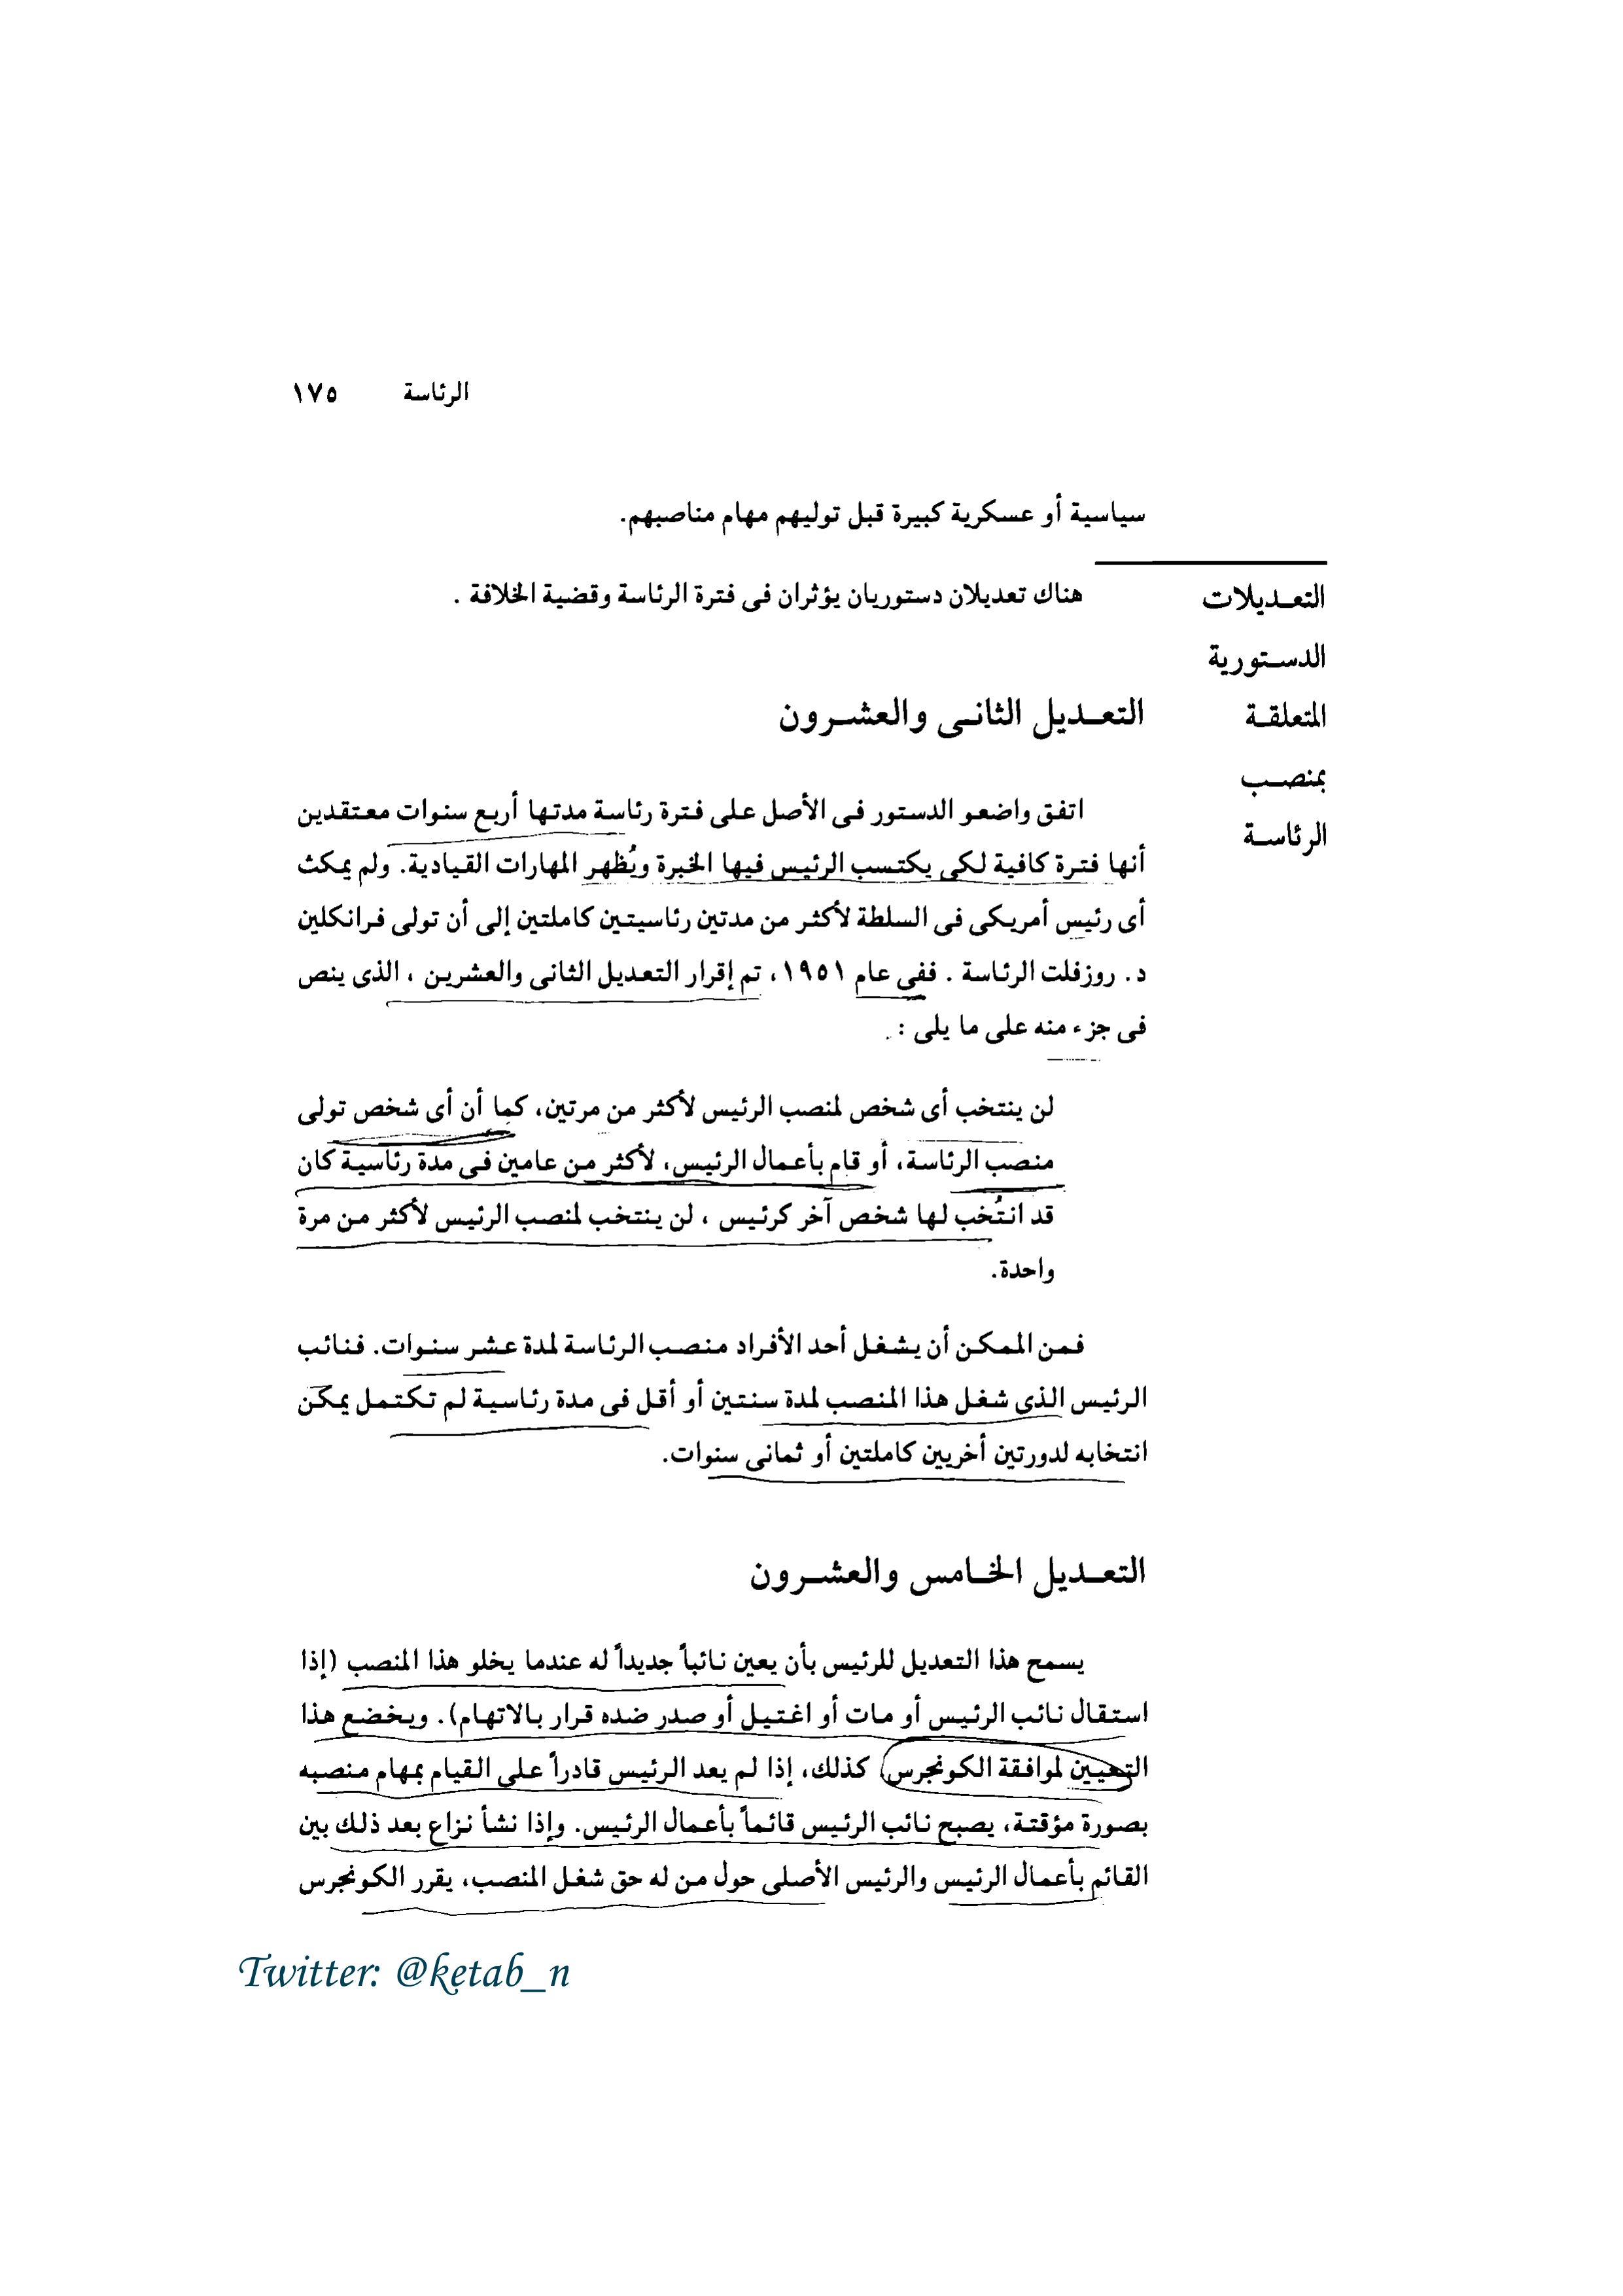 الرئاسة ١٧٥
سياسية أو عسكرية كبيرة قبل توليهم مهام مناصبهم.
التعـديلات
الدسـتورية
المتعلقـة
بمنصـب
الرئاسـة
هناك تعديلان دستوريان يؤثران فى فترة الرئاسة وقضية الخلافة .
التعـديل الثانـى والعشـرون
اتفق واضعو الدستور فى الأصل على فترة رئاسة مدتها أربع سنوات معتقدين
أنها فترة كافية لكى يكتسب الرئيس فيها الخبرة ويُظهر المهارات القيادية. ولم يمكث
أى رئيس أمريكى فى السلطة لأكثر من مدتين رئاسيتين كاملتين إلى أن تولى فرانكلين
د. روزفلت الرئاسة . ففى عام ١٩٥١، تم إقرار التعديل الثانى والعشرين ، الذى ينص
فى جزء منه على ما يلى :
لن ينتخب أى شخص لمنصب الرئيس لأكثر من مرتين، كما أن أى شخص تولى
منصب الرئاسة، أو قام بأعمال الرئيس، لأكثر من عامين فى مدة رئاسية كان
قد انتُخب لها شخص آخر كرئيس ، لن ينتخب لمنصب الرئيس لأكثر من مرة
واحدة.
فمن الممكن أن يشغل أحد الأفراد منصب الرئاسة لمدة عشر سنوات. فنائب
الرئيس الذى شغل هذا المنصب لمدة سنتين أو أقل فى مدة رئاسية لم تكتمل يمكن
انتخابه لدورتين أخريين كاملتين أو ثمانى سنوات.
التعـديل الخـامس والعشـرون
يسمح هذا التعديل للرئيس بأن يعين نائباً جديداً له عندما يخلو هذا المنصب (إذا
استقال نائب الرئيس أو مات أو اغتيل أو صدر ضده قرار بالاتهام). ويخضع هذا
التعيين لموافقة الكونجرس كذلك، إذا لم يعد الرئيس قادراً على القيام بمهام منصبه
بصورة مؤقتة، يصبح نائب الرئيس قائماً بأعمال الرئيس. وإذا نشأ نزاع بعد ذلك بين
القائم بأعمال الرئيس والرئيس الأصلى حول من له حق شغل المنصب، يقرر الكونجرس
Twitter: @ketab_n